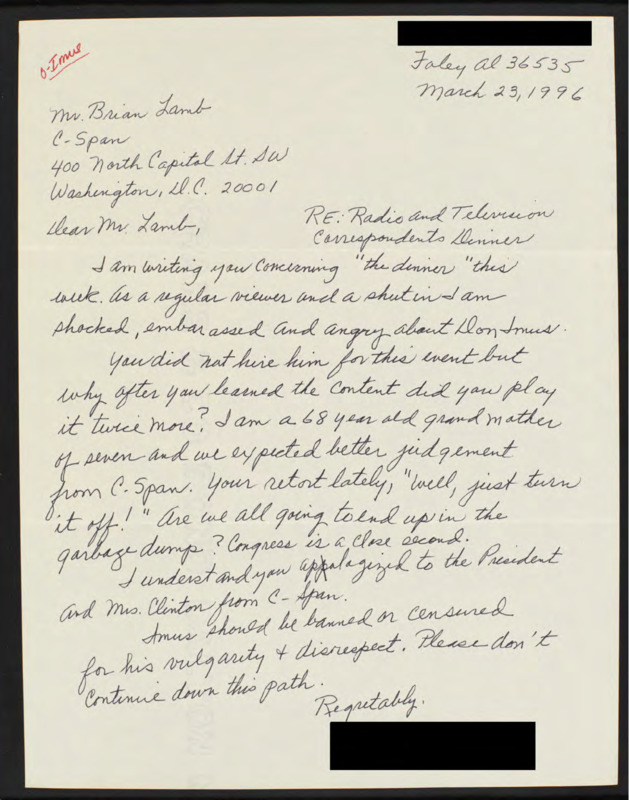 O-Imus
Foley Al 36535
March 23, 1996
Mr. Brian Lamb
C-Span
400 North Capital St. SW
Washington, D.C. 20001
Dear Mr. Lamb,
RE: Radio and Television
Correspondents Dinner
I am writing you concerning "the dinner" this
week. As a regular viewer and a shut in I am
shocked, embarassed and angry about Don Imus.
You did not hire him for this event but
why after you learned the content did you play
it twice more? I am a 68 year old grandmother
of seven and we expected better judgement
from C-Span. Your retort lately, "Well, just turn
it off!" Are we all going to end up in the
garbage dump? Congress is a close second.
I understand you appologized to the President
and Mrs. Clinton from C-Span.
Imus should be banned or censured
for his vulgarity & disrespect. Please don't
continue down this path.
Regretably.